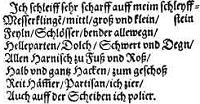 Ich schleiff sehr scharff auff mein schleyff-
Messerklinge/ mitl/ groß vnd klein/ stein
Feyln/ Schlösser/ bender allewegn/
Helleparten/ Dolch/ Schwert vnd Degn/
Allen Harnisch zu Fuß vnd Roß/
Halb vnd gantz Hacken/ zum geschoß
Reit Häm̃er/ Partisan/ ich zier/
Auch auff der Scheiben ich polier.